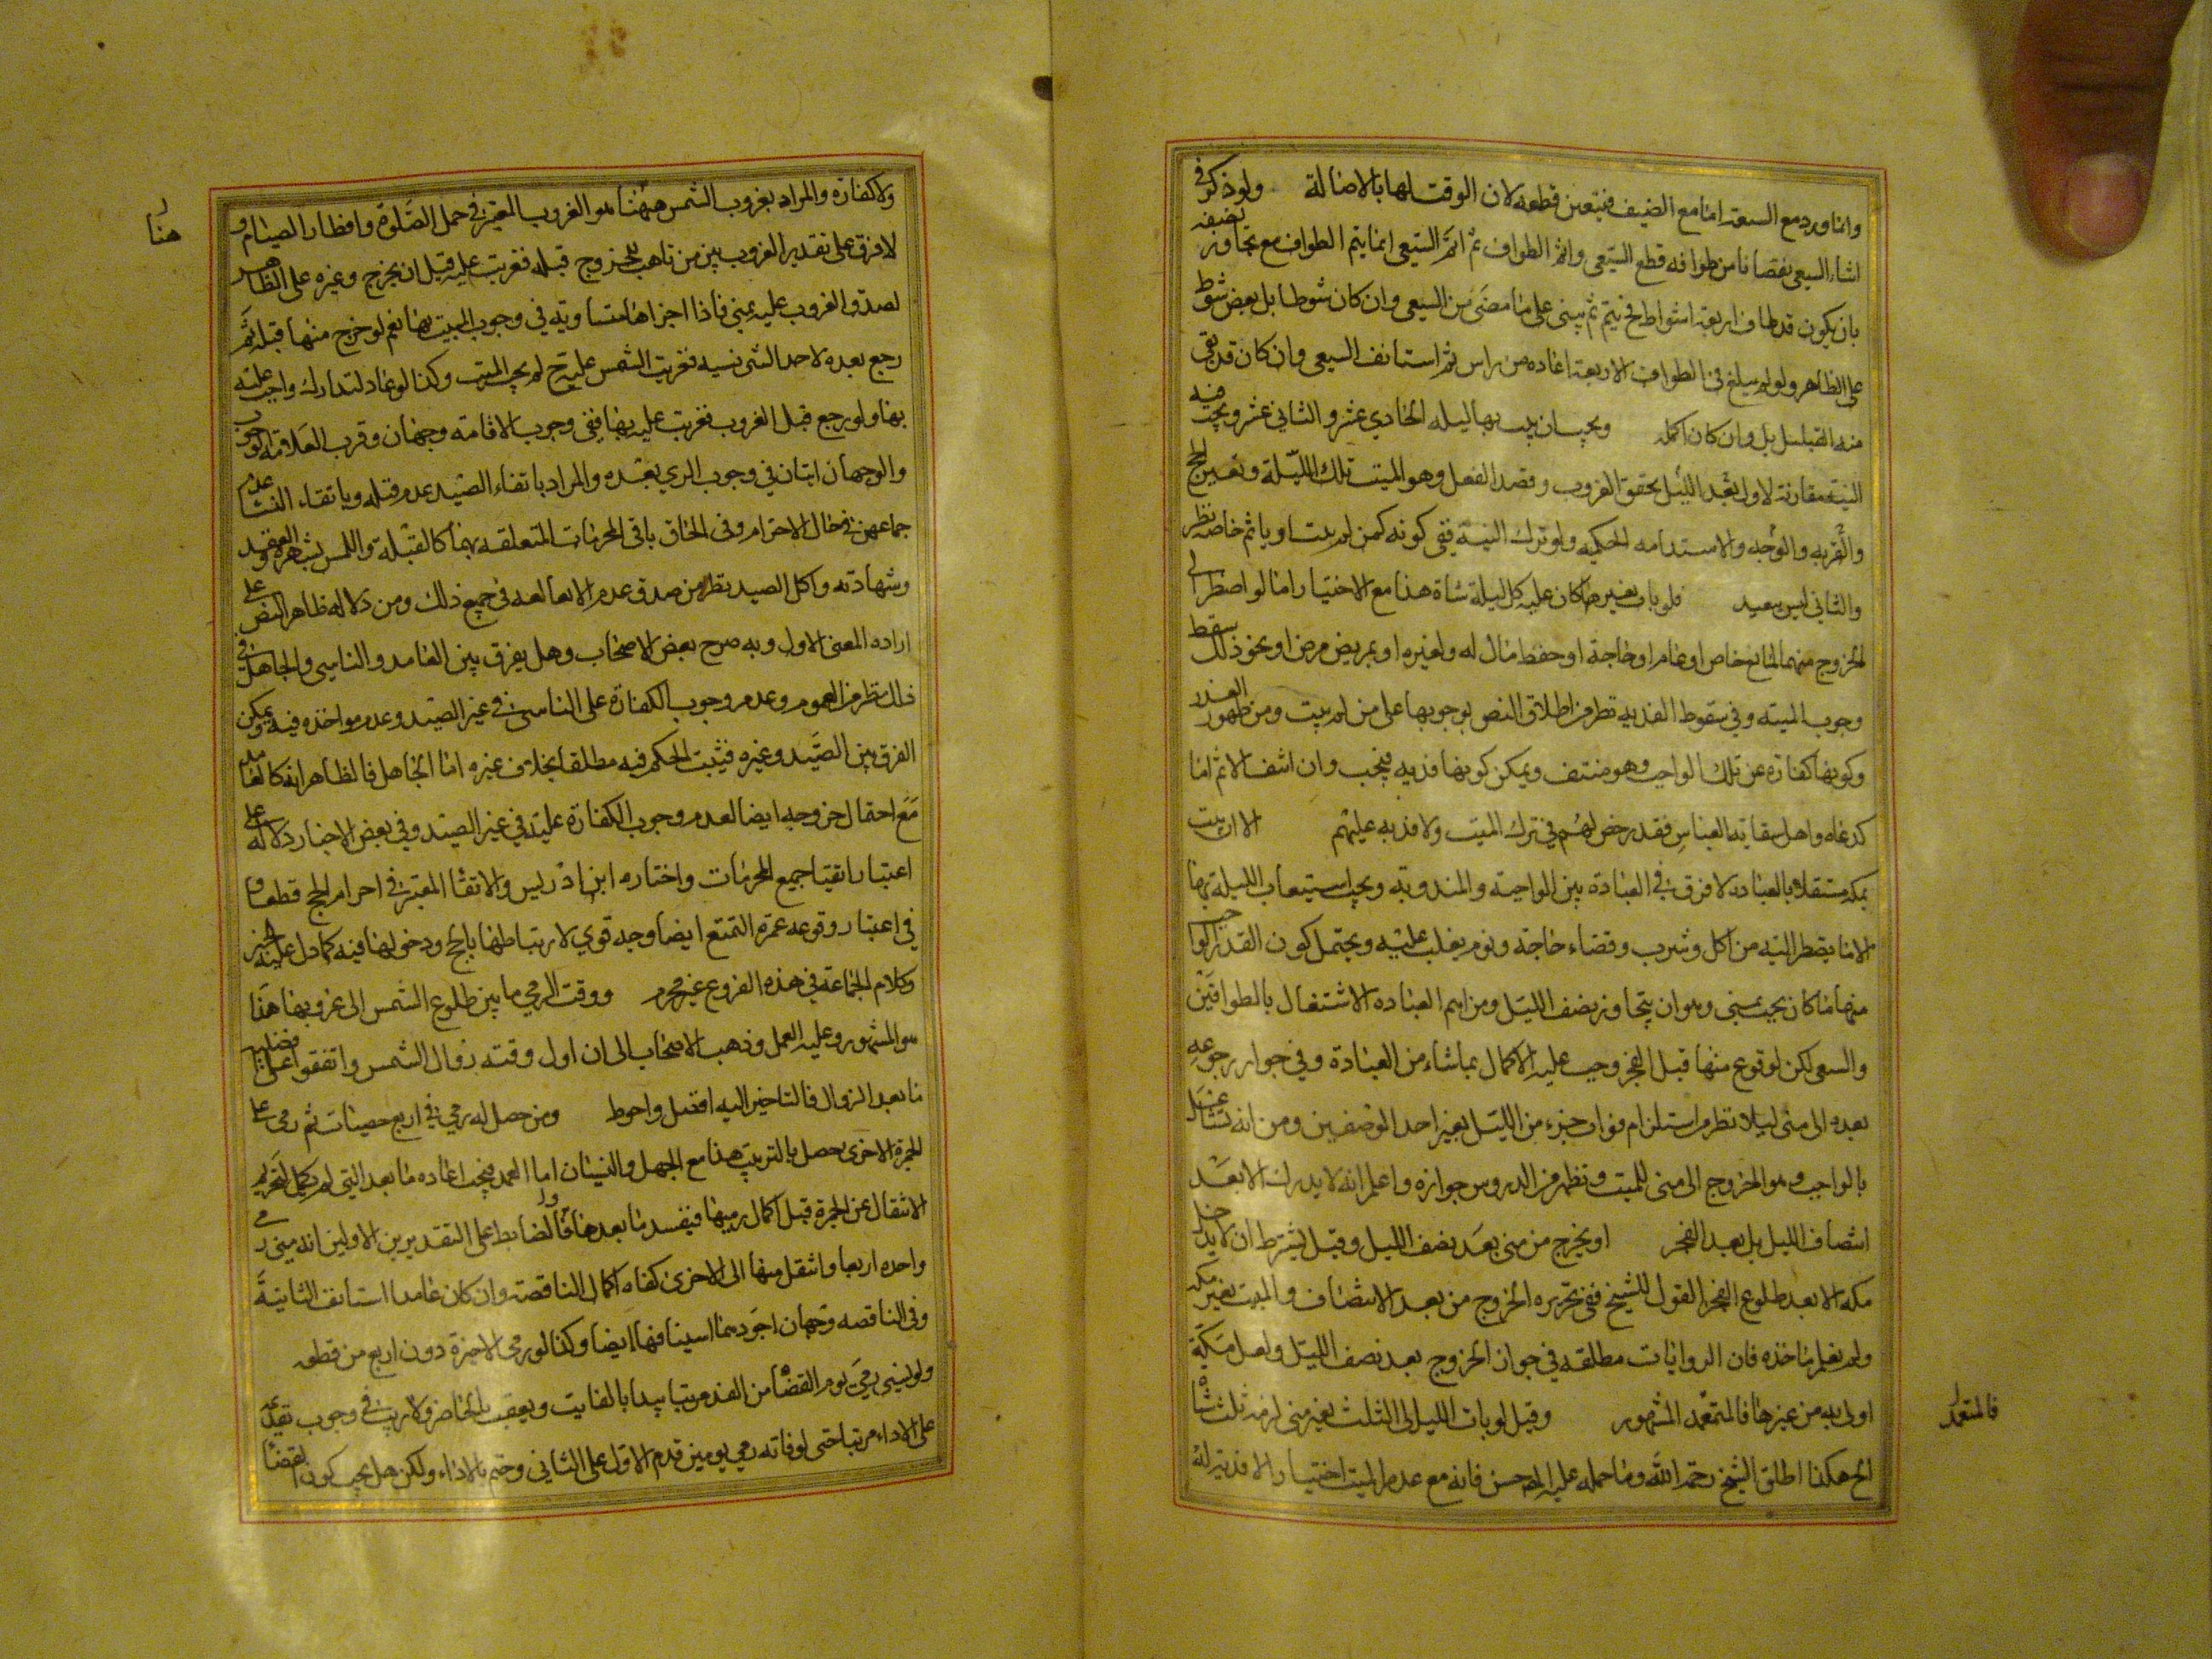 وانما ورد مع السعة اما مع الضيق فيتعين قطعه لان الوقت لها بالاصالة ولو ذكر في
اثناء السعي نقصانا من طوافه قطع السعي واتم الطواف ثم اتم السعي انما يتم الطواف مع تجاوز نصفه
بان يكون قد طاف اربعة اشواط فح يتم ثم يبني على ما مضى من السعي وان كان شوطا بل بعض شوط
على الظاهر ولو لم يبلغ في الطواف الاربعة اعاده من راس ثم استانف السعي وان كان قد بقي
منه القليل بل وان كان اكمله ويجب ان يبيت بها ليله الحادي عشر والثاني عشر ويجب فيه
النية مقارنة لاول بعد الليل بحقق الغروب وقصد الفعل وهو المبيت تلك الليلة وتعيين الحج
والقربه والوجه والاستدامه الحكميه ولو ترك النية ففي كونه كمن لم يبت او ياثم خاصه نظر
والثاني ليس ببعيد فلو بات بغيرها كان عليه كل ليلة شاة هذا مع الاختيار اما لو اضطر الى
الخروج منهما لمانع خاص او عام او حاجة او حفظ مال له ولغيره او تمريض مرض او نحو ذلك سقط
وجوب المبيته وفي سقوط الفديه نظر من اطلاق النص بوجوبها على من لم يبت ومن ظهور العذر
وكونها كفارة عن تلك الواجب وهو منتف ويمكن كونها فديه فيجب وان انتفا الاثم اما
كدعاه واهل سقايته العباس فقد رخص لهم في ترك المبيت ولا فديه عليهم الا ان يبيت
بمكه مشتغلا بالعباده لا فرق في العبادة بين الواجبة والمندوبة ويجب استيعاب الليلة بها
الا ما يضطر اليه من اكل وشرب وقضاء حاجة ونوم يغلب عليه ويحتمل كون القدر الواجب
منها ما كان يجب بمنى وهو ان يتجاوز نصف الليل ومن اهم العباده الاشتغال بالطوافين
والسعي لكن لو فرغ منها قبل الفجر وجب عليه الاكمال بما شاء من العبادة وفي جواز رجوعه
بعده الى منى ليلا نظر من استلزام فوات جزء من الليل بغير احد الوصفين ومن انه تشاغل
بالواجب وهو الخروج الى منى للمبيت وتظهر من الدروس جوازه واعلم انه لا يدرك الا بعد
انتصاف الليل بل بعد الفجر او يخرج من منى بعد نصف الليل وقيل يشترط ان لا يدخل
مكه الا بعد طلوع الفجر القول للشيخ ففي تحريره الخروج من بعد الانتصاف والمبيت بغير مكه
ولم يعلم ماخذه فان الروايات مطلقه في جواز الخروج بعد نصف الليل ولعل مكة
اولى به من غيرها فالمتعمد المشهور وقيل لو بات الليالي الثلث بغير منى لزمه ثلث شيا
فالمتعد
الخ هكذا اطلق الشيخ رحمه الله وما حمله عليه المص حسن فانه مع عدم المبيت اختيارا لا فدية له
ولا كفارة والمراد بغروب الشمس ههنا هو الغروب المعتبر في حمل الصلوة وافطار الصيام و
هنا
لا فرق على تقدير الغروب بين من تاهب للخروج قبله فغربت عليه قبل ان يخرج وغيره على الظاهر
لصدق الغروب عليه بمنى فاذا اجزاها متساوية في وجوب المبيت بها نعم لو خرج منها قبله ثم
رجع بعده لاخذ الشئ نسيه فغربت الشمس عليه ح لم يجب المبيت وكذا لو عاد لتدارك واجب عليه
بها ولو رجع قبل الغروب فغربت عليه بها ففي وجوب الاقامة وجهان وقرب العلامة الوجوب
والوجهان اتيان في وجوب الرمي بعده والمراد باتقاء الصيد عدم قتله وباتقاء النساء عدم
جماعهن في حال الاحرام وفي الحاق باقي المحرمات المتعلقه بهما كالقبلة واللمس بشهوة والعقد
وشهادته واكل الصيد نظر من صدق عدم الاتقا لعه في جميع ذلك ومن دلاله ظاهر النص على
اراده المعنى الاول وبه صرح بعض الاصحاب وهل يفرق بين العامد والناسي والجاهل في
ذلك نظر من العموم وعدم وجوب الكفارة على الناسي في غير الصيد وعدم مواخذه فيه ويمكن
الفرق بين الصيد وغيره فيثبت الحكم فيه مطلقا بخلاف غيره اما الجاهل فالظاهر انه كالعامد
مع احتمال خروجه ايضا لعدم وجوب الكفارة عليه في غير الصيد وفي بعض الاخبار دلاله على
اعتبار اتقيا جميع المحرمات واختاره ابن ادريس والاتقا المعتبر في احرام الحج قطعا و
في اعتبار وقوعه عمرة التمتع ايضا وجه قوي لارتباطها بالحج ودخولها فيه كما دل عليه الخبر
وكلام الجماعة في هذه الفروع غير محرم ووقت الرمي ما بين طلوع الشمس الى غروبها هذا
هو المشهور وعليه العمل وذهب الاصحاب الى ان اول وقته زوال الشمس واتفقوا على فضيلة
ما بعد الزوال فالتاخير اليه افضل واحوط ومن حصل له رمي في اربع حصيات ثم رمى على
الجمرة الاخرى حصل بالترتيب هذا مع الجهل والنسيان اما العمد فيجب اعاده ما بعد التي لم تكمل لتحريم
الانتقال عن الجمرة قبل اكمال رميها فيفسد ما بعدها والضابط على التقديرين الاولين انه متى رمى
واحده اربعا وانتقل منها الى الاخرى كفاه اكمال الناقصة وان كان عامدا استانف الثانية
وفي الناقصه وجهان اجودهما استينافها ايضا وكذا لو رمى الاخيرة دون اربع من قطعه
ولو نسي رمي يوم القضا من الغد مرتبا يبدا بالفايت ويعقب بالحاضر ولا ريب في وجوب تقديمه
على الاداء مرتبا حتى لو فاته رمي يومين قدم الاول على الثاني وختم بالاداء ولكن هل يجب كون القضا